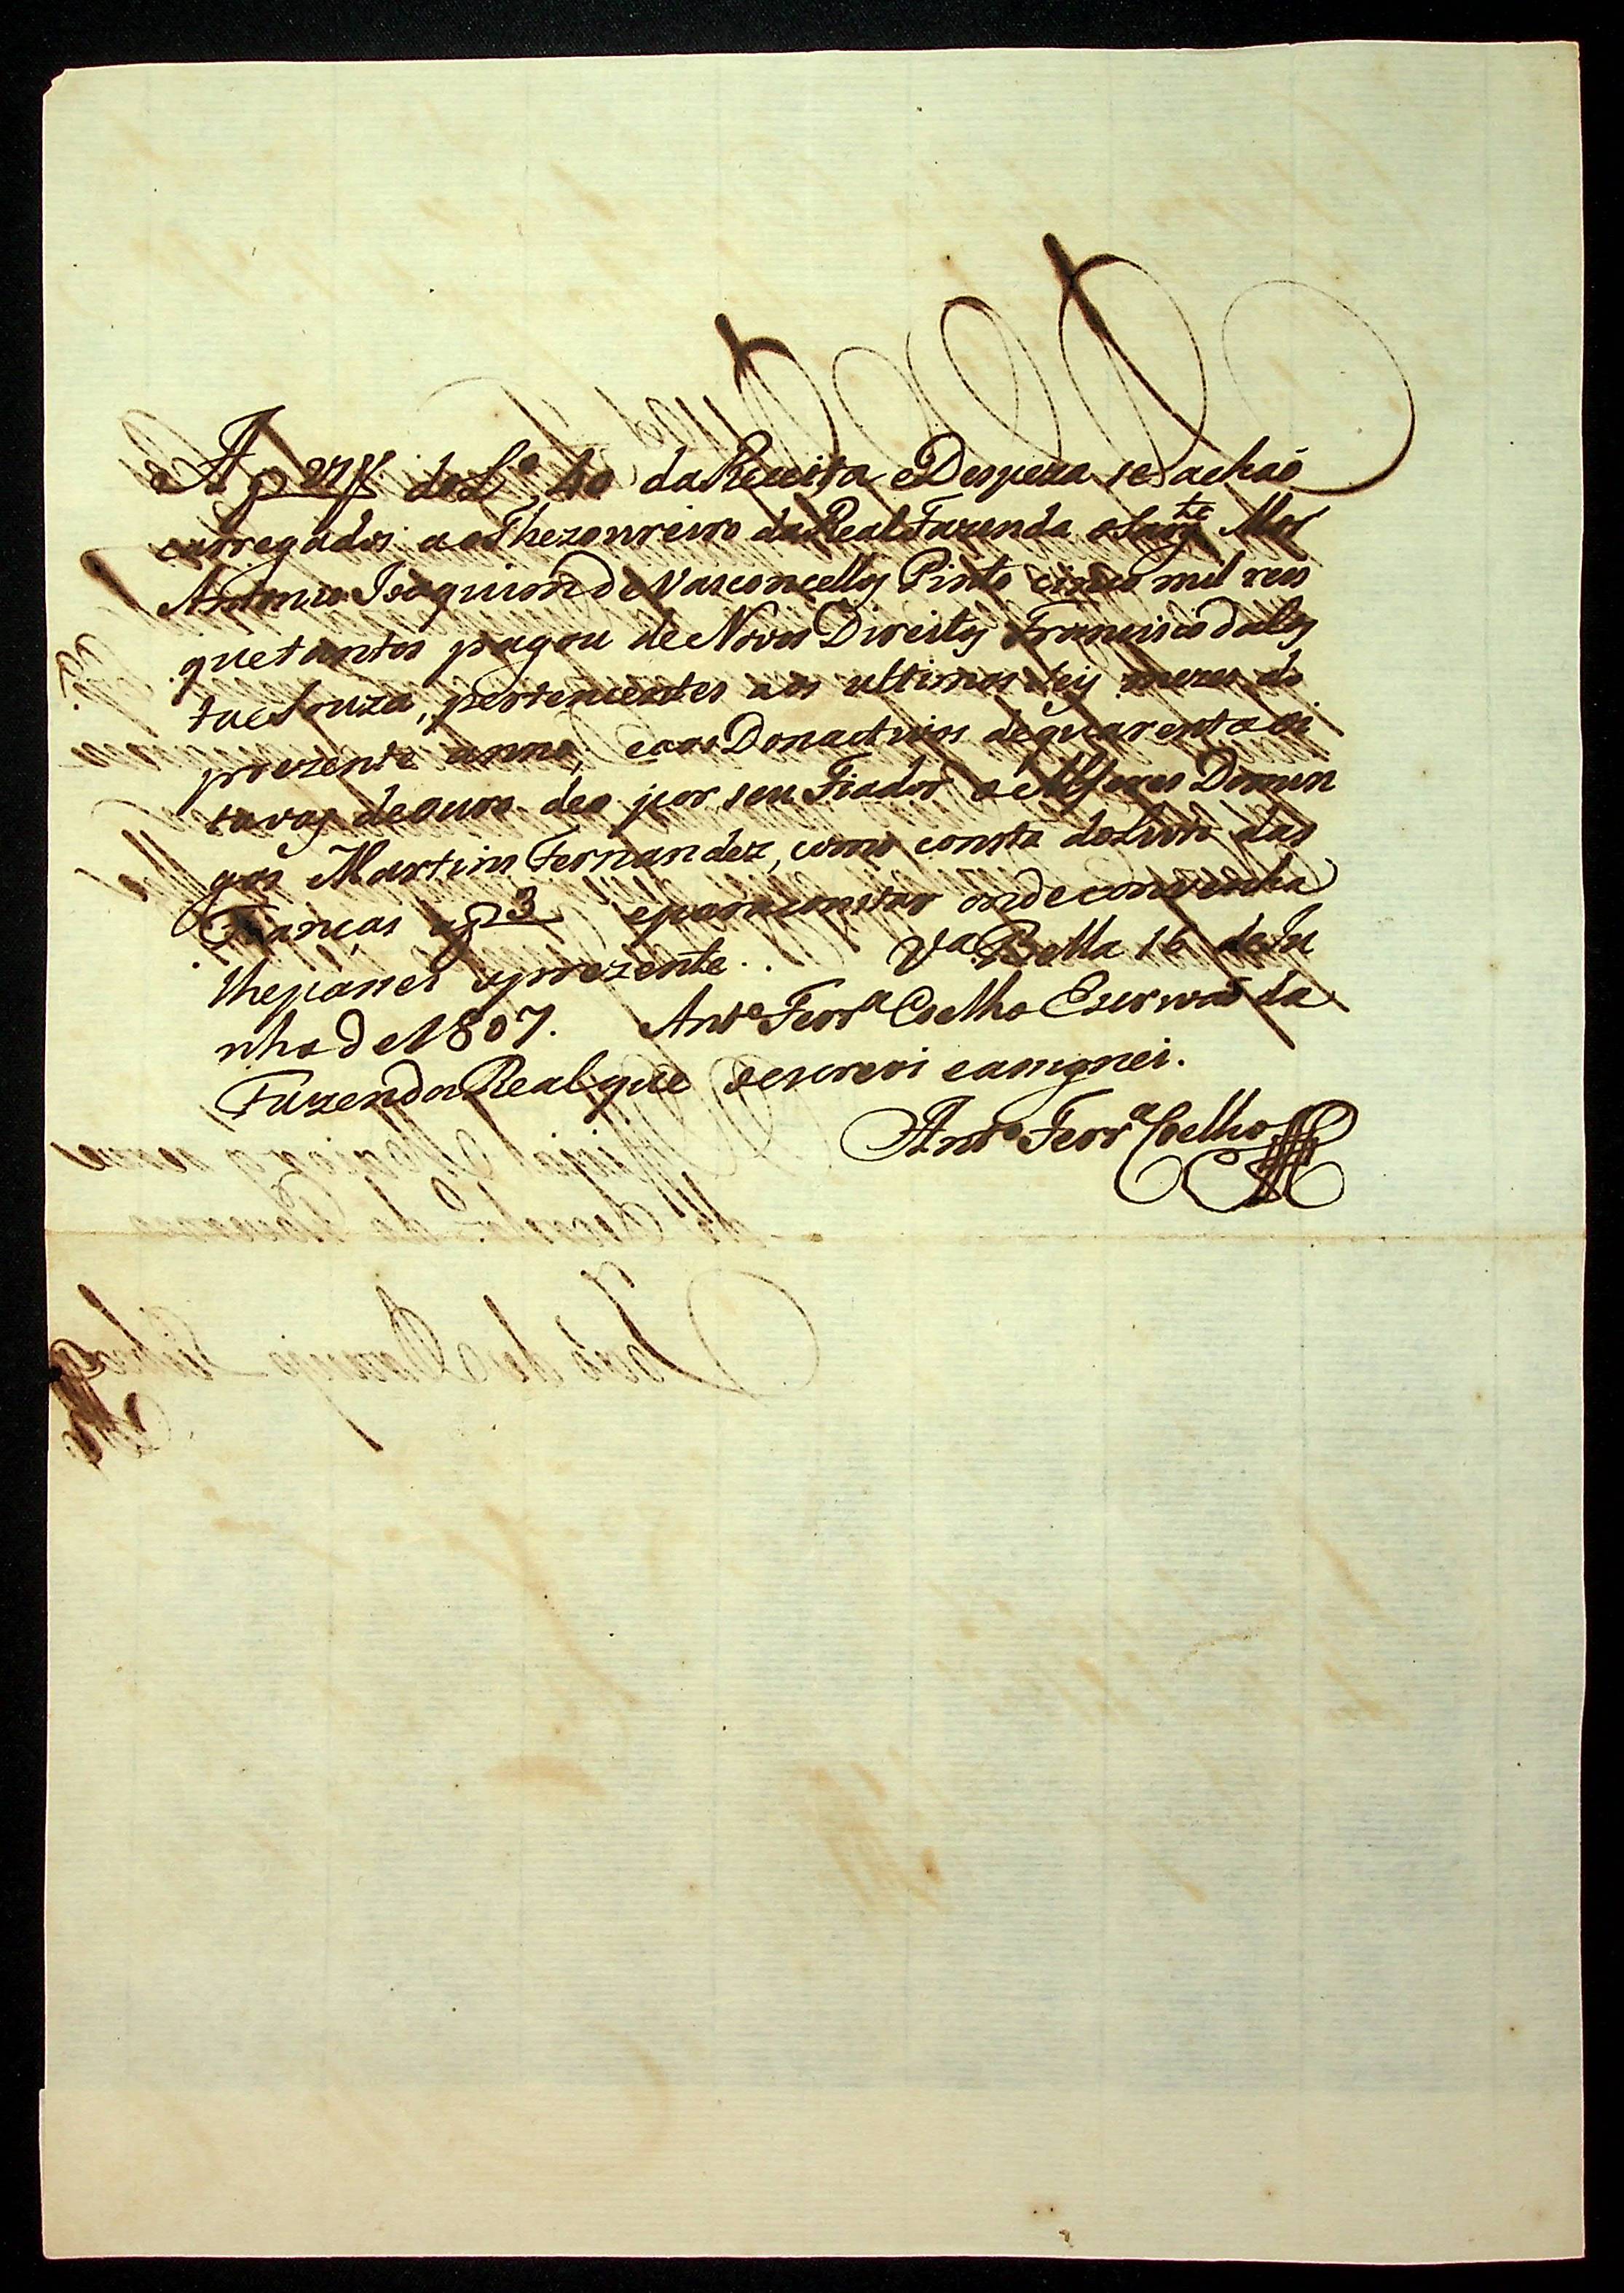 A f do L.º 40 da Receita e Despeza se achaõ
carregados ao Thezoureiro da Real Fazenda o Sarg.te Mor
Antonio Joaquim de Vasconcellos Pinto cinco mil reis
que tantos pagou de Novos Direitos Francisco da Cos
ta e Souza, pertencentes aos ultimos seis mezes do
prezente anno; e aos Donactivos de quarenta oi
tavas de ouro deo por seu Fiador o Alferes Domin
gos Martins Fernandez, como consta do Livro das
Fianças a f 3 e para constar onde convenha
lhe passei o prezente. V.a Bella 16 de Ju
nho de 1807. Ant.º Ferr.a Coelho Escrivaõ da
Fazenda Real que o escrevi e assignei.
Ant.º Ferr.a Coelho